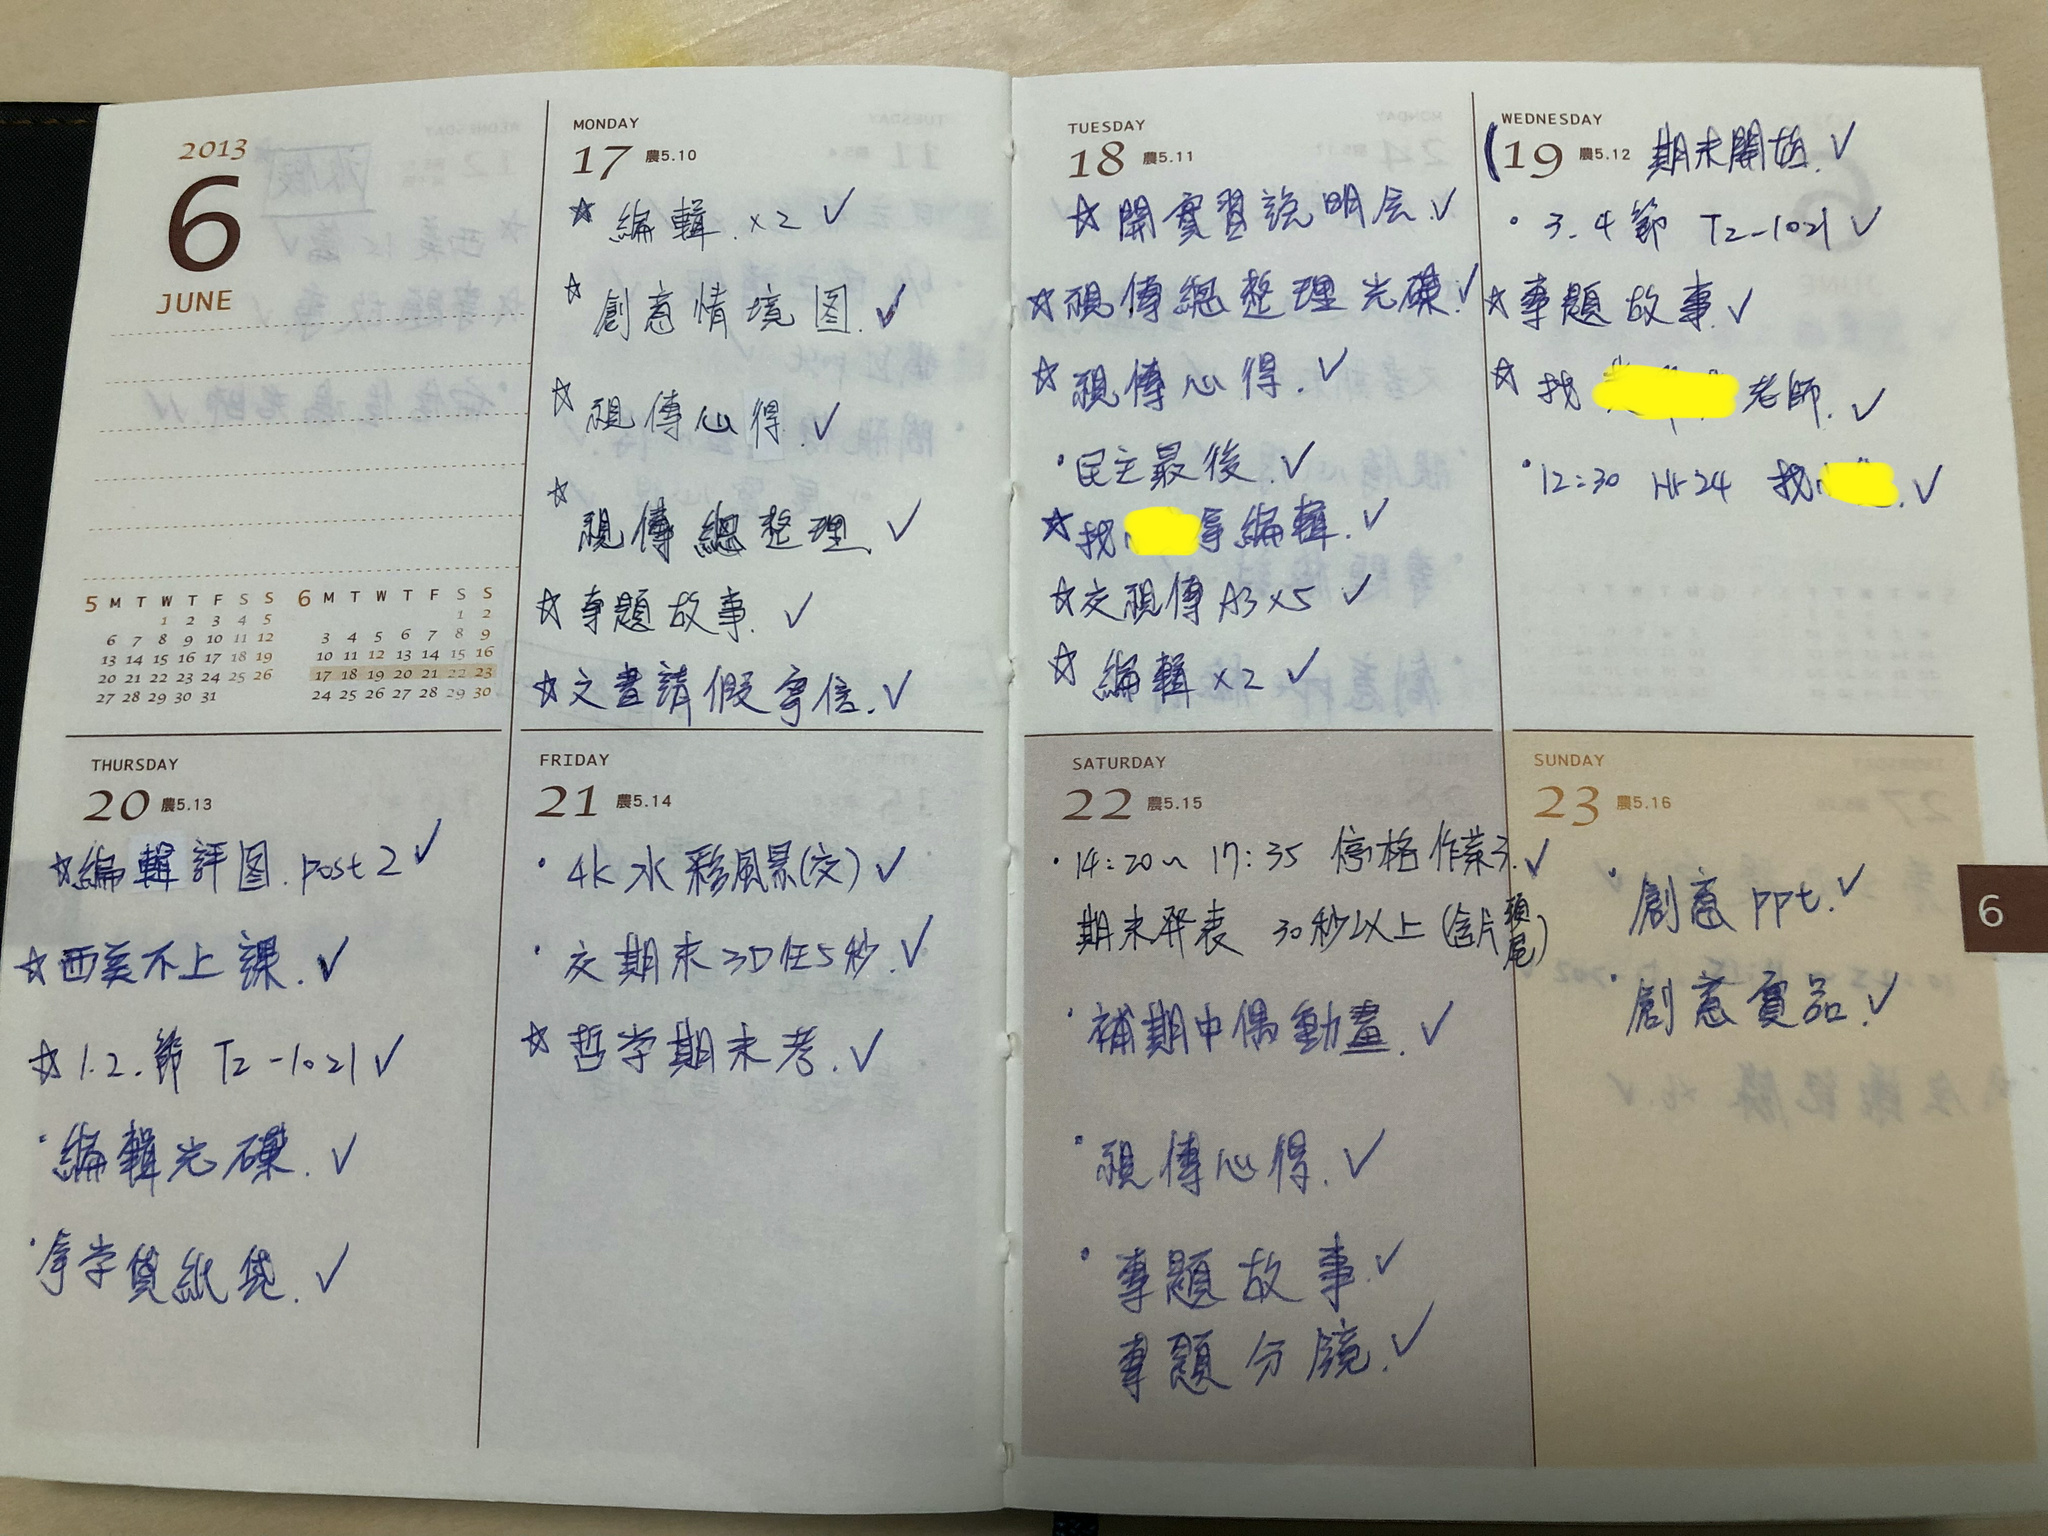 2013
6
JUNE
5 M T W T F S S
1 2 3 4 5
6 7 8 9 10 11 12
13 14 15 16 17 18 19
20 21 22 23 24 25 26
27 28 29 30 31
6 M T W T F S S
1 2
3 4 5 6 7 8 9
10 11 12 13 14 15 16
17 18 19 20 21 22 23
24 25 26 27 28 29 30
MONDAY
17 農5.10
☆ 編輯.x2 ✓
☆ 創意情境图.✓
☆ 視傳心得.✓
☆ 視傳總整理.✓
☆ 專題故事.✓
☆ 文書請假寄信.✓
TUESDAY
18 農5.11
☆ 開實習說明会.✓
☆ 視傳總整理光碟.✓
☆ 視傳心得.✓
·民主最後.✓
☆ 找 拿編輯.✓
☆ 交視傳 A3x5 ✓
☆ 編輯x2 ✓
WEDNESDAY
19 農5.12 期末開始.✓
· 3.4節 T2-1021 ✓
☆ 專題故事.✓
☆ 找 老師.✓
·12:30 找 .✓
THURSDAY
20 農5.13
☆編輯評图.post 2 ✓
☆西美不上課.✓
☆1.2.節 T2-1021 ✓
·編輯光碟.✓
·拿学貸紙袋.✓
FRIDAY
21 農5.14
· 4k水彩風景(交) ✓
· 交期末3D任5秒.✓
☆ 哲学期末考.✓
SATURDAY
22 農5.15
·14:20~17:35 停格作業3.✓
期末発表 30秒以上(含片頭尾)
·補期中偶動畫.✓
·視傳心得.✓
·專題故事.✓
專題分鏡.✓
SUNDAY
23 農5.16
·創意ppt.✓
·創意實品.✓
6